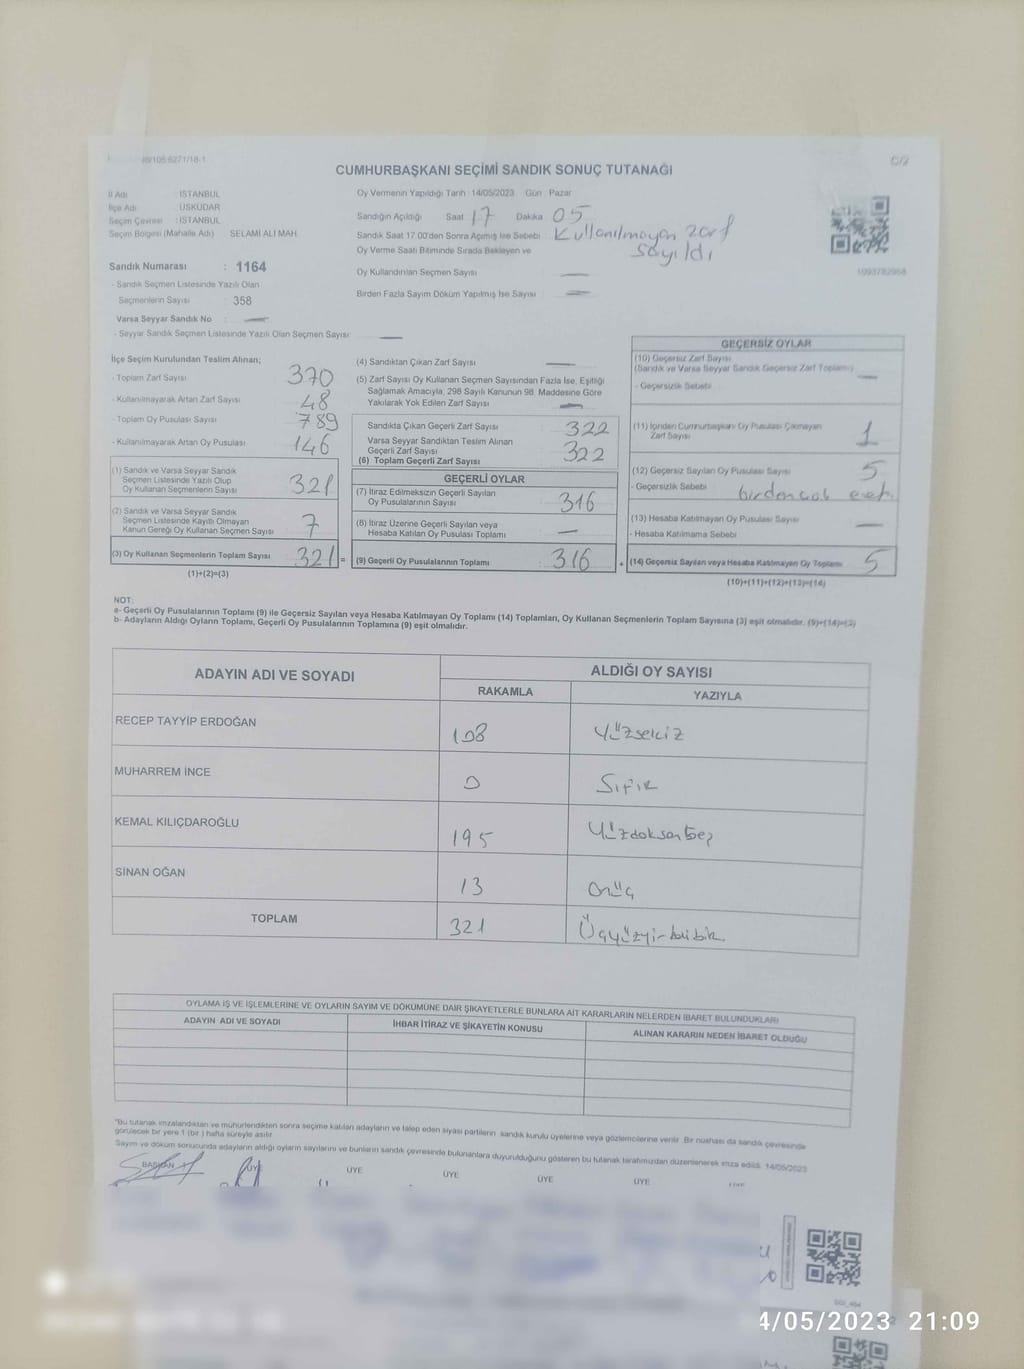 CUMHURBAŞKANI SEÇİMİ SANDIK SONUÇ TUTANAĞI
C/2
İl Adı : İSTANBUL
İlçe Adı : ÜSKÜDAR
Seçim Çevresi : İSTANBUL
Seçim Bölgesi (Mahalle Adı) SELAMİ ALİ MAH.
Sandık Numarası : 1164
- Sandık Seçmen Listesinde Yazılı Olan
Seçmenlerin Sayısı : 358
Varsa Seyyar Sandık No : —
- Seyyar Sandık Seçmen Listesinde Yazılı Olan Seçmen Sayısı: —
Oy Vermenin Yapıldığı Tarih : 14/05/2023 Gün : Pazar
Sandığın Açıldığı Saat 17 Dakika 05
Sandık Saat 17.00'den Sonra Açılmış İse Sebebi : Kullanılmayan zarf
sayıldı
Oy Verme Saati Bitiminde Sırada Bekleyen ve
Oy Kullandırılan Seçmen Sayısı —
Birden Fazla Sayım Döküm Yapılmış İse Sayısı : —
1093782958
İlçe Seçim Kurulundan Teslim Alınan;
- Toplam Zarf Sayısı 370
- Kullanılmayarak Artan Zarf Sayısı : 48
- Toplam Oy Pusulası Sayısı : 789
- Kullanılmayarak Artan Oy Pusulası : 146
(1) Sandık ve Varsa Seyyar Sandık
Seçmen Listesinde Yazılı Olup
Oy Kullanan Seçmenlerin Sayısı : 321
(2) Sandık ve Varsa Seyyar Sandık
Seçmen Listesinde Kayıtlı Olmayan
Kanun Gereği Oy Kullanan Seçmen Sayısı : 7
(3) Oy Kullanan Seçmenlerin Toplam Sayısı : 321 =
(1)+(2)=(3)
(4) Sandıktan Çıkan Zarf Sayısı : —
(5) Zarf Sayısı Oy Kullanan Seçmen Sayısından Fazla İse, Eşitliği
Sağlamak Amacıyla, 298 Sayılı Kanunun 98. Maddesine Göre
Yakılarak Yok Edilen Zarf Sayısı : —
Sandıkta Çıkan Geçerli Zarf Sayısı : 322
Varsa Seyyar Sandıktan Teslim Alınan
Geçerli Zarf Sayısı : 322
(6) Toplam Geçerli Zarf Sayısı
GEÇERLİ OYLAR
(7) İtiraz Edilmeksizin Geçerli Sayılan
Oy Pusulalarının Sayısı : 316
(8) İtiraz Üzerine Geçerli Sayılan veya
Hesaba Katılan Oy Pusulası Toplamı : —
(9) Geçerli Oy Pusulalarının Toplamı : 316 +
GEÇERSİZ OYLAR
(10) Geçersiz Zarf Sayısı
(Sandık ve Varsa Seyyar Sandık Geçersiz Zarf Toplamı) —
- Geçersizlik Sebebi :
(11) İçinden Cumhurbaşkanı Oy Pusulası Çıkmayan
Zarf Sayısı 1
(12) Geçersiz Sayılan Oy Pusulası Sayısı : 5
- Geçersizlik Sebebi : birden
(13) Hesaba Katılmayan Oy Pusulası Sayısı : —
- Hesaba Katılmama Sebebi :
(14) Geçersiz Sayılan veya Hesaba Katılmayan Oy Toplamı 5
(10)+(11)+(12)+(13)=(14)
NOT:
a- Geçerli Oy Pusulalarının Toplamı (9) ile Geçersiz Sayılan veya Hesaba Katılmayan Oy Toplamı (14) Toplamları, Oy Kullanan Seçmenlerin Toplam Sayısına (3) eşit olmalıdır. (9)+(14)=(3)
b- Adayların Aldığı Oyların Toplamı, Geçerli Oy Pusulalarının Toplamına (9) eşit olmalıdır.
ADAYIN ADI VE SOYADI
ALDIĞI OY SAYISI
RAKAMLA YAZIYLA
RECEP TAYYİP ERDOĞAN 108 Yüzsekiz
MUHARREM İNCE 0 Sıfır
KEMAL KILIÇDAROĞLU 195 Yüzdoksanbeş
SİNAN OĞAN 13 Onüç
TOPLAM 321 Üçyüzyirmibir
OYLAMA İŞ VE İŞLEMLERİNE VE OYLARIN SAYIM VE DÖKÜMÜNE DAİR ŞİKAYETLERLE BUNLARA AİT KARARLARIN NELERDEN İBARET BULUNDUKLARI
ADAYIN ADI VE SOYADI İHBAR İTİRAZ VE ŞİKAYETİN KONUSU ALINAN KARARIN NEDEN İBARET OLDUĞU
"Bu tutanak imzalandıktan ve mühürlendikten sonra seçime katılan adayların ve talep eden siyasi partilerin sandık kurulu üyelerine veya gözlemcilerine verilir. Bir nüshası da sandık çevresinde
görülecek bir yere 1 (bir ) hafta süreyle asılır.
Sayım ve döküm sonucunda adayların aldığı oyların sayılarını ve bunların sandık çevresinde bulunanlara duyurulduğunu gösteren bu tutanak tarafımızdan düzenlenerek imza edildi. 14/05/2023
BAŞKAN ÜYE ÜYE ÜYE ÜYE ÜYE
4/05/2023 21:09